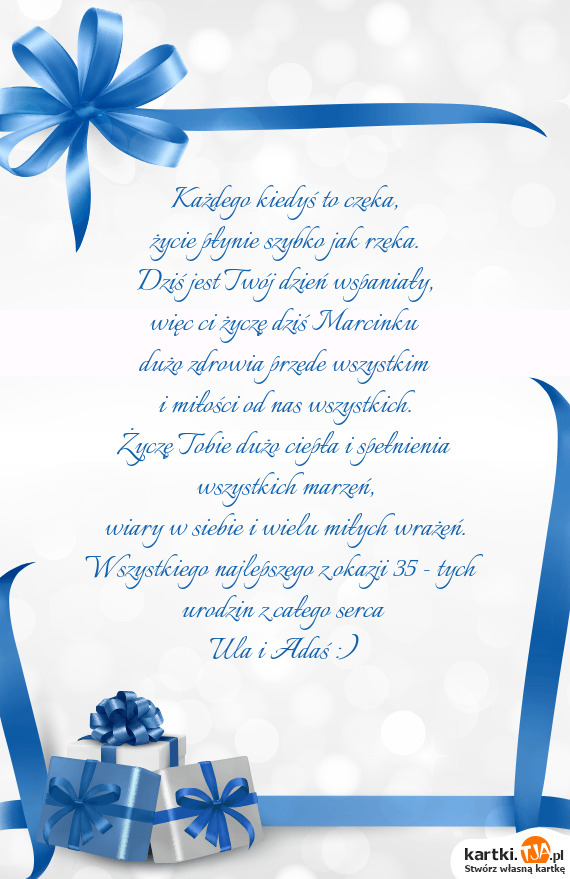 Każdego kiedyś to czeka,
życie płynie szybko jak rzeka.
Dziś jest Twój dzień wspaniały,
więc ci życzę dziś Marcinku
dużo zdrowia przede wszystkim
i miłości od nas wszystkich.
Życzę Tobie dużo ciepła i spełnienia
wszystkich marzeń,
wiary w siebie i wielu miłych wrażeń.
Wszystkiego najlepszego z okazji 35 - tych
urodzin z całego serca
Ula i Adaś :)
kartki.TJA.pl
Stwórz własną kartkę